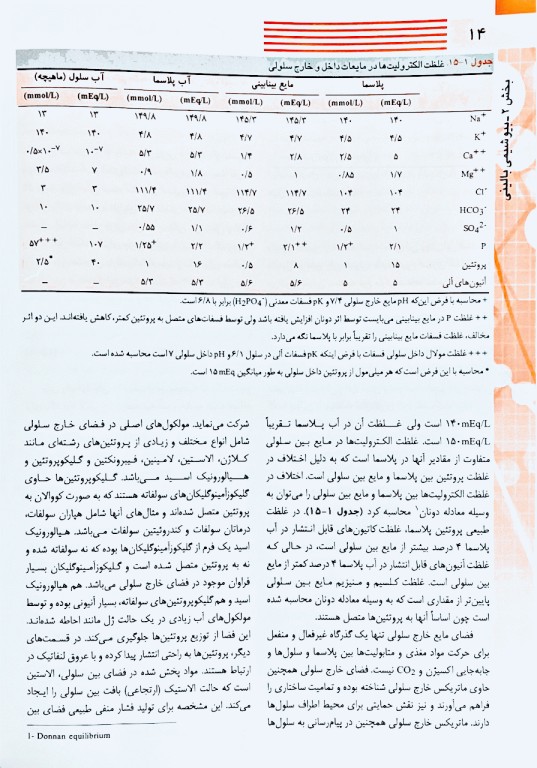 ۱۴
بخش ۲ ـ بیوشیمی بالینی
جدول ۱-۱۵ غلظت الکترولیت‌ها در مایعات داخل و خارج سلولی
پلاسما مایع بینابینی آب پلاسما آب سلول (ماهیچه)
(mEq/L) (mmol/L) (mEq/L) (mmol/L) (mEq/L) (mmol/L) (mEq/L) (mmol/L)
Na+ ۱۴۰ ۱۴۰ ۱۴۵/۳ ۱۴۵/۳ ۱۴۹/۸ ۱۴۹/۸ ۱۳ ۱۳
K+ ۴/۵ ۴/۵ ۴/۷ ۴/۷ ۴/۸ ۴/۸ ۱۴۰ ۱۴۰
Ca++ ۵ ۲/۵ ۲/۸ ۱/۴ ۵/۳ ۵/۳ ۱۰−۷ ۰/۵×۱۰−۷
Mg++ ۱/۷ ۰/۸۵ ۱ ۰/۵ ۱/۸ ۰/۹ ۷ ۳/۵
Cl- ۱۰۴ ۱۰۴ ۱۱۴/۷ ۱۱۴/۷ ۱۱۱/۴ ۱۱۱/۴ ۳ ۳
HCO3- ۲۴ ۲۴ ۲۶/۵ ۲۶/۵ ۲۵/۷ ۲۵/۷ ۱۰ ۱۰
SO42- ۱ ۰/۵ ۱/۲ ۰/۶ ۱/۱ ۰/۵۵ – –
P ۲/۱ ۱/۲+ ۲/۱++ ۱/۲+ ۲/۲ ۱/۲۵+ ۱۰۷ ۵۷+++
پروتئین ۱۵ ۱ ۸ ۰/۵ ۱۶ ۱ ۴۰ ۲/۵*
آنیون‌های آلی ۵ ۵ ۵/۶ ۵/۶ ۵/۳ ۵/۳ – –
+ محاسبه با فرض این‌که pH مایع خارج سلولی ۷/۴ و pK فسفات معدنی (H2PO4-) برابر با ۶/۸ است.
+ + غلظت P در مایع بینابینی می‌بایست توسط اثر دونان افزایش یافته باشد ولی توسط فسفات‌های متصل به پروتئین کمتر، کاهش یافته‌انـد. این دو اثـر
مخالف، غلظت فسفات مایع بینابینی را تقریباً برابر با پلاسما نگه می‌دارد.
+ + + غلظت مولال داخل سلولی فسفات با فرض اینکه pK فسفات آلی در سلول ۶/۱ و pH داخل سلولی ۷ است محاسبه شده است.
* محاسبه با این فرض است که هر میلی‌مول از پروتئین داخل سلولی به طور میانگین ۱۵ mEq است.
۱۴۰mEq/L است ولی غـلظت آن در آب پـلاسما تقریباً
۱۵۰mEq/L است. غلظت الکترولیت‌ها در مایع بین سـلولی
متفاوت از مقادیر آنها در پلاسما است که به دلیل اختلاف در
غلظت پروتئین بین پلاسما و مایع بین سلولی است. اختلاف در
غلظت الکترولیت‌ها بین پلاسما و مایع بین سلولی را می‌توان به
وسیله معادله دونان۱ محاسبه کرد (جدول ۱-۱۵). در غلظت
طبیعی پروتئین پلاسما، غلظت کاتیون‌های قابل انـتشار در آب
پلاسما ۴ درصد بیشتر از مایع بین سلولی است، در حـالی کـه
غلظت آنیون‌های قابل انتشار در آب پلاسما ۴ درصد کمتر از مایع
بین سلولی است. غلظت کـلسیم و مـنیزیم مـایع بـین سـلولی
پایین‌تر از مقداری است که به وسیله معادله دونان محاسبه شده
است چون اساساً آنها به پروتئین‌ها متصل هستند.
فضای مایع خارج سلولی تنها یک گذرگاه غیرفعال و منفعل
برای حرکت مواد مغذی و متابولیت‌ها بین پلاسما و سلول‌ها و
جابه‌جایی اکسیژن و CO2 نیست. فضای خارج سلولی همچنین
حاوی ماتریکس خارج سلولی شناخته بوده و تمامیت ساختاری را
فراهم می‌آورند و نیز نقش حمایتی برای محیط اطراف سلول‌ها
دارند. ماتریکس خارج سلولی همچنین در پیام‌رسانی به سلول‌ها
شرکت می‌نماید. مولکول‌های اصلی در فـضای خـارج سـلولی
شامل انواع مختلف و زیادی از پـروتئین‌های رشـته‌ای مـانند
کـلاژن، الاستین، لامـینین، فیبرونکتین و گـلیکوپروتئین و
هـیـالورونیک اسـید مـی‌باشد. گـلیکوپروتئین‌ها حـاوی
گلیکوزآمینوگلیکان‌های سولفاته هستند که به صورت کووالان به
پروتئین متصل شده‌اند و مثال‌های آنها شامل هپاران سولفات،
درماتان سولفات و کندروئیتین سولفات می‌باشد. هیالورونیک
اسید یک فرم از گلیکوزآمینوگلیکان‌ها بوده که نه سولفاته شده و
نه به پروتئین متصل شده است و گلیکوزآمینوگلیکان بسیار
فراوان موجود در فضای خارج سلولی می‌باشد. هم هیالورونیک
اسید و هم گلیکوپروتئین‌های سولفاته، بسیار آنیونی بوده و توسط
مولکول‌های آب زیادی در یک حالت ژل مانند احاطه شده‌اند.
این فضا از توزیع پروتئین‌ها جلوگیری مـی‌کند. در قسمت‌های
دیگر، پروتئین‌ها به راحتی انتشار پیدا کرده و با عروق لنفاتیک در
ارتباط هستند. مواد پخش شده در فضای بین سلولی، الاستین
است که حالت الاستیک (ارتجاعی) بافت بین سلولی را ایـجاد
می‌کند. این مشخصه برای تولید فشار منفی طبیعی فضای بین
1- Donnan equilibrium